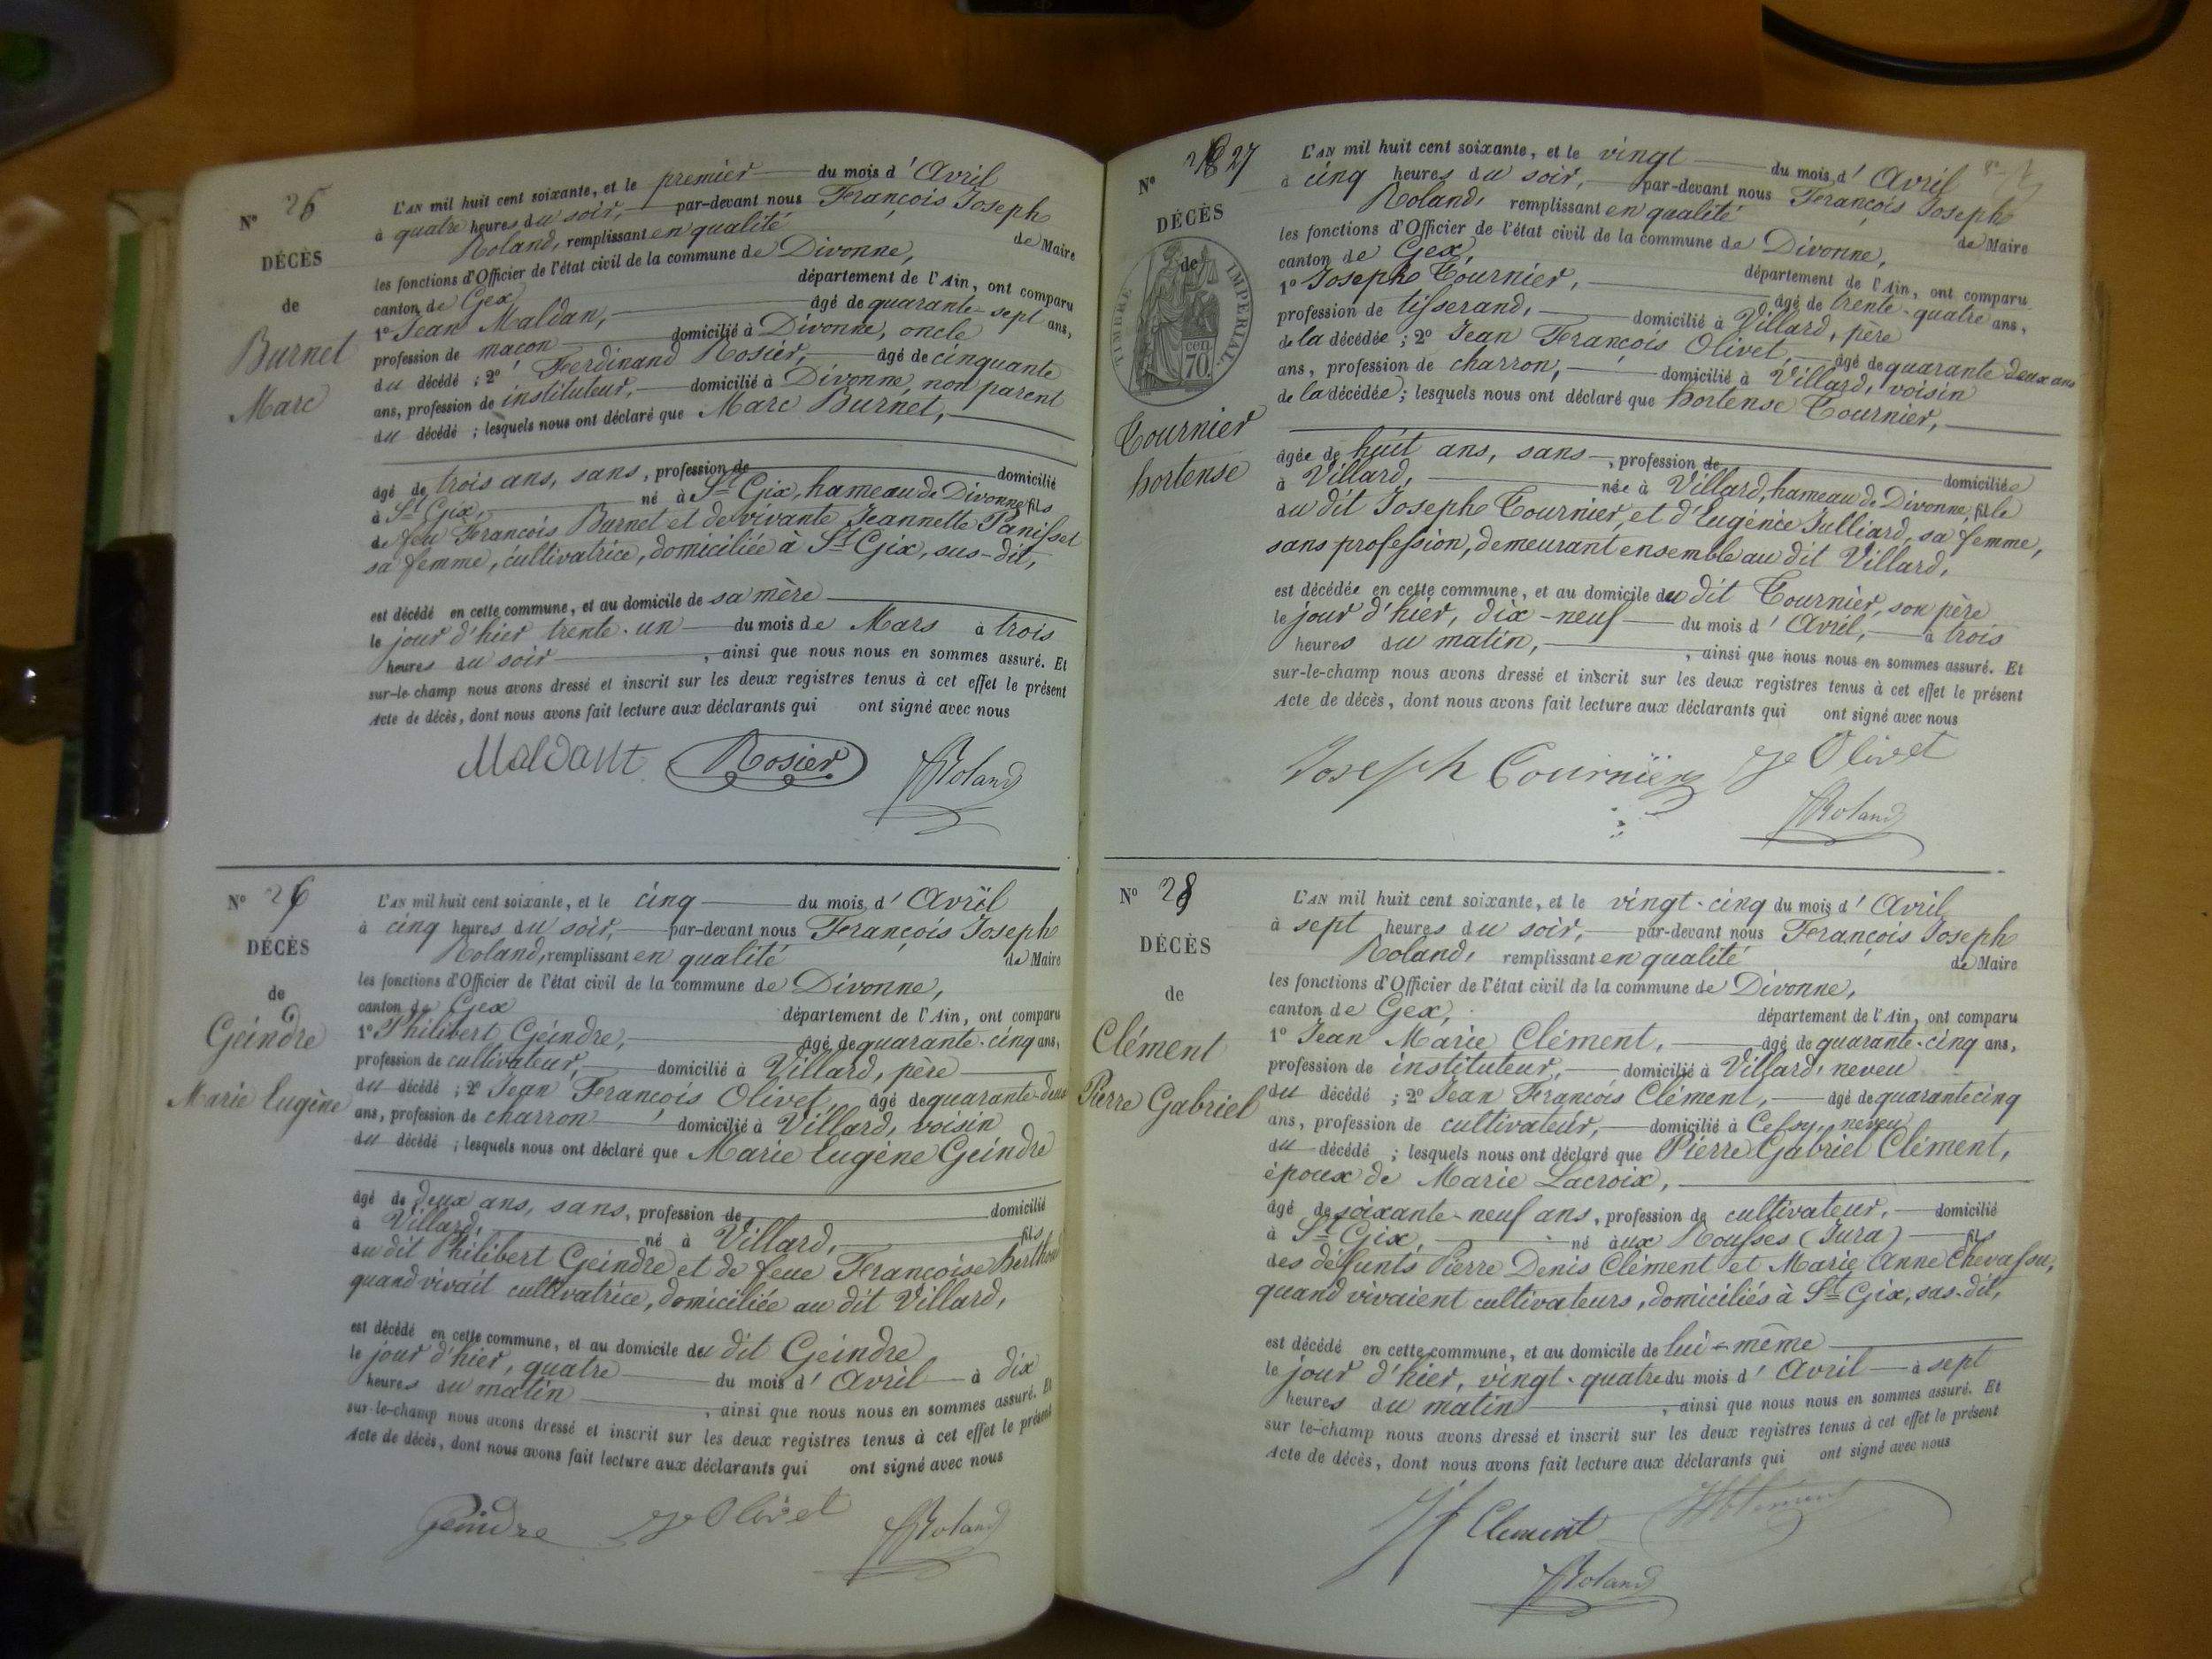 N° 26
DÉCÈS
de
Burnet
Marc
L'AN mil huit cent soixante, et le premier du mois d'Avril
à quatre heures du soir, par-devant nous François Joseph
Roland, remplissant en qualité de Maire
les fonctions d'Officier de l'état civil de la commune de Divonne,
canton de Gex, département de l'Ain, ont comparu
1° Jean Maldan, âgé de quarante-sept ans,
profession de maçon domicilié à Divonne, oncle
du décédé ; 2° Ferdinand Rosier, âgé de cinquante
ans, profession de instituteur, domicilié à Divonne, non parent
du décédé ; lesquels nous ont déclaré que Marc Burnet,
âgé de trois ans, sans, profession de domicilié
à St Gix, né à St Gix, hameau de Divonne fils
de feu François Burnet et de vivante Jeannette Panisset
sa femme, cultivatrice, domiciliée à St Gix, sus-dit,
est décédé en cette commune, et au domicile de sa mère
le jour d'hier trente-un du mois de Mars à trois
heures du soir, ainsi que nous nous en sommes assuré. Et
sur-le-champ nous avons dressé et inscrit sur les deux registres tenus à cet effet le présent
Acte de décès, dont nous avons fait lecture aux déclarants qui ont signé avec nous
Maldant Rosier Roland
N° 26
DÉCÈS
de
Geindre
Marie Eugène
L'AN mil huit cent soixante, et le cinq du mois d'Avril
à cinq heures du soir, par-devant nous François Joseph
Roland, remplissant en qualité de Maire
les fonctions d'Officier de l'état civil de la commune de Divonne,
canton de Gex département de l'Ain, ont comparu
1° Philibert Geindre, âgé de quarante-cinq ans,
profession de cultivateur, domicilié à Villard, père
du décédé ; 2° Jean François Olivet, âgé de quarante-deux
ans, profession de charron domicilié à Villard, voisin
du décédé ; lesquels nous ont déclaré que Marie Eugène Geindre
âgé de deux ans, sans, profession de domicilié
à Villard, né à Villard, fils
du dit Philibert Geindre et de feue Françoise Berthoud
quand vivait cultivatrice, domiciliée au dit Villard,
est décédé en cette commune, et au domicile du dit Geindre
le jour d'hier, quatre du mois d'Avril à dix
heures du matin, ainsi que nous nous en sommes assuré. Et
sur-le-champ nous avons dressé et inscrit sur les deux registres tenus à cet effet le présent
Acte de décès, dont nous avons fait lecture aux déclarants qui ont signé avec nous
Geindre Olivet Roland
N° 27
DÉCÈS
de
TIMBRE IMPERIAL.
70. cen
Tournier
hortense
L'AN mil huit cent soixante, et le vingt du mois d'Avril
à cinq heures du soir, par-devant nous François Joseph
Roland, remplissant en qualité de Maire
les fonctions d'Officier de l'état civil de la commune de Divonne,
canton de Gex, département de l'Ain, ont comparu
1° Joseph Tournier, âgé de trente-quatre ans,
profession de tisserand, domicilié à Villard, père
de la décédée ; 2° Jean François Olivet, âgé de quarante deux ans
ans, profession de charron, domicilié à Villard, voisin
de la décédée ; lesquels nous ont déclaré que hortense Tournier,
âgée de huit ans, sans, profession de domiciliée
à Villard, née à Villard, hameau de Divonne, fille
du dit Joseph Tournier, et d'Eugénie Julliard, sa femme,
sans profession, demeurant ensemble au dit Villard,
est décédée en cette commune, et au domicile du dit Tournier, son père
le jour d'hier, dix-neuf du mois d'Avril, à trois
heures du matin, ainsi que nous nous en sommes assuré. Et
sur-le-champ nous avons dressé et inscrit sur les deux registres tenus à cet effet le présent
Acte de décès, dont nous avons fait lecture aux déclarants qui ont signé avec nous
Joseph Tournier Olivet
Roland
N° 28
DÉCÈS
de
Clément
Pierre Gabriel
L'AN mil huit cent soixante, et le vingt-cinq du mois d'Avril
à sept heures du soir, par-devant nous François Joseph
Roland, remplissant en qualité de Maire
les fonctions d'Officier de l'état civil de la commune de Divonne,
canton de Gex, département de l'Ain, ont comparu
1° Jean Marie Clément, âgé de quarante-cinq ans,
profession de instituteur, domicilié à Villard, neveu
du décédé ; 2° Jean François Clément, âgé de quarante cinq
ans, profession de cultivateur, domicilié à Cessy, neveu
du décédé ; lesquels nous ont déclaré que Pierre Gabriel Clément,
époux de Marie Lacroix,
âgé de soixante-neuf ans, profession de cultivateur, domicilié
à St Gix, né aux Rousses (Jura) fils
des défunts Pierre Denis Clément et Marie Anne Chevassu,
quand vivaient cultivateurs, domiciliés à St Gix, sus-dit,
est décédé en cette commune, et au domicile de lui-même
le jour d'hier, vingt-quatre du mois d'Avril à sept
heures du matin, ainsi que nous nous en sommes assuré. Et
sur le-champ nous avons dressé et inscrit sur les deux registres tenus à cet effet le présent
Acte de décès, dont nous avons fait lecture aux déclarants qui ont signé avec nous
Clement
Roland